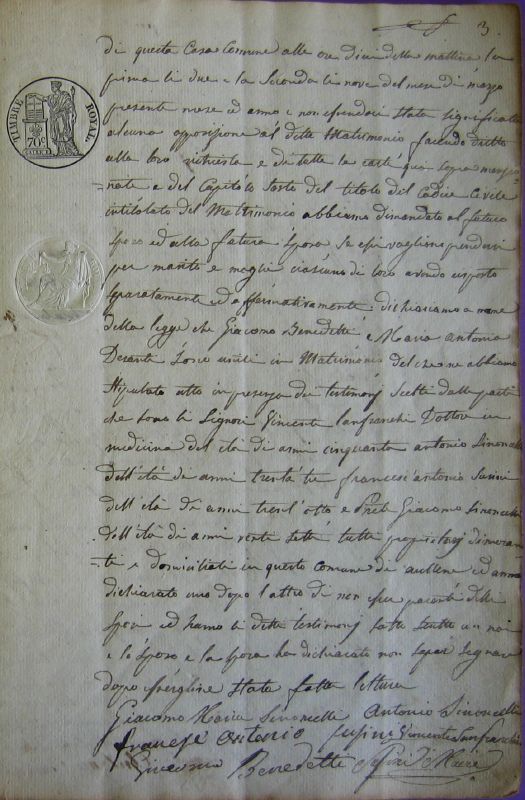 3
TIMBRE ROYAL
70c
di questa Casa Comune alle ore dieci della mattina la
prima li due e la seconda li nove del mese di marzo
presente mese ed anno e non essendoci stata significata
alcuna opposizione al detto Matrimonio facendo dritto
alla loro richiesta e di tutte le carte qui sopra menzio
nate e del Capitolo sesto del titolo del Codice Civile
intitolato del Matrimonio abbiamo dimandato al futuro
sposo ed alla futura sposa se essi vogliono prendersi
per marito e moglie ciascuno di loro avendo risposto
separatamente ed affirmativamente: dichiariamo a nome
della legge che Giacomo Benedetti e Maria Antonia
sono uniti in Matrimonio del che ne abbiamo
stipulato atto in presenza dei testimonj scelti dalle parti
che sono li Signori Vincente Lanfranchi Dottore in
medicina dell'età di anni cinquanta Antonio Simoncelli
dell'età di anni trenta tre Francesc'antonio Susini
dell'età di anni trent'otto e Giacomo Simoncelli
dell'età di anni sette tutti proprietarj dimoran
ti e domiciliati in questo comune di aullene ed anno
dichiarato uno dopo l'altro di non esser parenti delli
sposi ed hanno li detti testimonj sotto scritto con noi
e lo sposo e la sposa ha dichiarato non saper segnare
dopo essergline stata fatta lettura
Giacomo Maria Simoncelli Antonio Simoncelli
francesc Antonio Susini Vincente Lanfranchi
Giacomo Benedetti Susini Maire